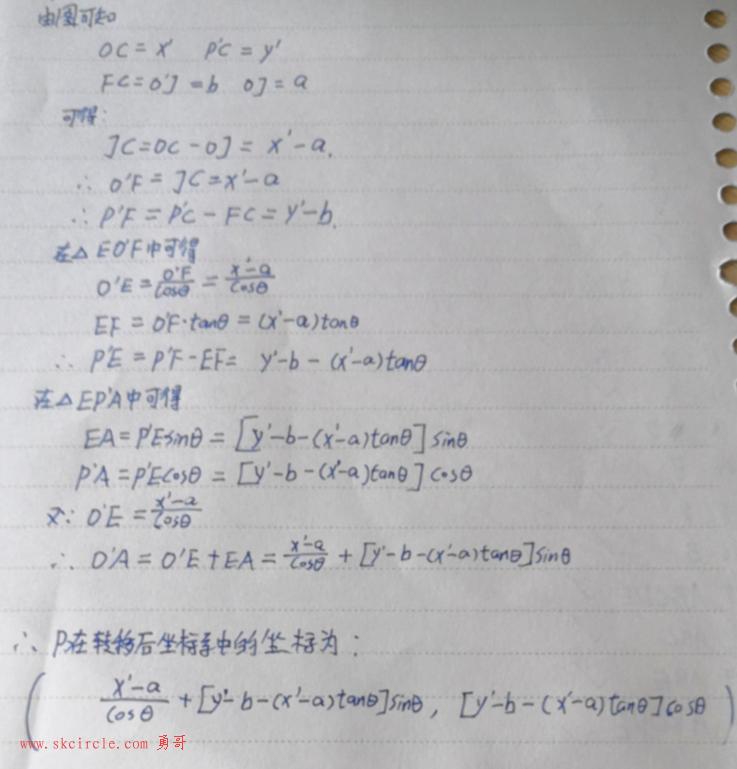 由图可知
OC = x' P'C = y'
FC = O'J = b OJ = a
可得:
JC = OC - OJ = x' - a.
∴ O'F = JC = x' - a
∴ P'F = P'C - FC = y' - b.
在△EO'F中可得
O'E = O'F/cosθ = x'-a/cosθ
EF = O'F·tanθ = (x'-a)tanθ
∴ P'E = P'F - EF = y'-b-(x'-a)tanθ
在△EP'A中可得
EA = P'Esinθ = [y'-b-(x'-a)tanθ]sinθ
P'A = P'Ecosθ = [y'-b-(x'-a)tanθ]cosθ
又∵ O'E = x'-a/cosθ
∴ O'A = O'E + EA = x'-a/cosθ + [y'-b-(x'-a)tanθ]sinθ
∴ P在转移后坐标系中的坐标为:
( x'-a/cosθ + [y'-b-(x'-a)tanθ]sinθ, [y'-b-(x'-a)tanθ]cosθ )
www.skcircle.com 勇哥